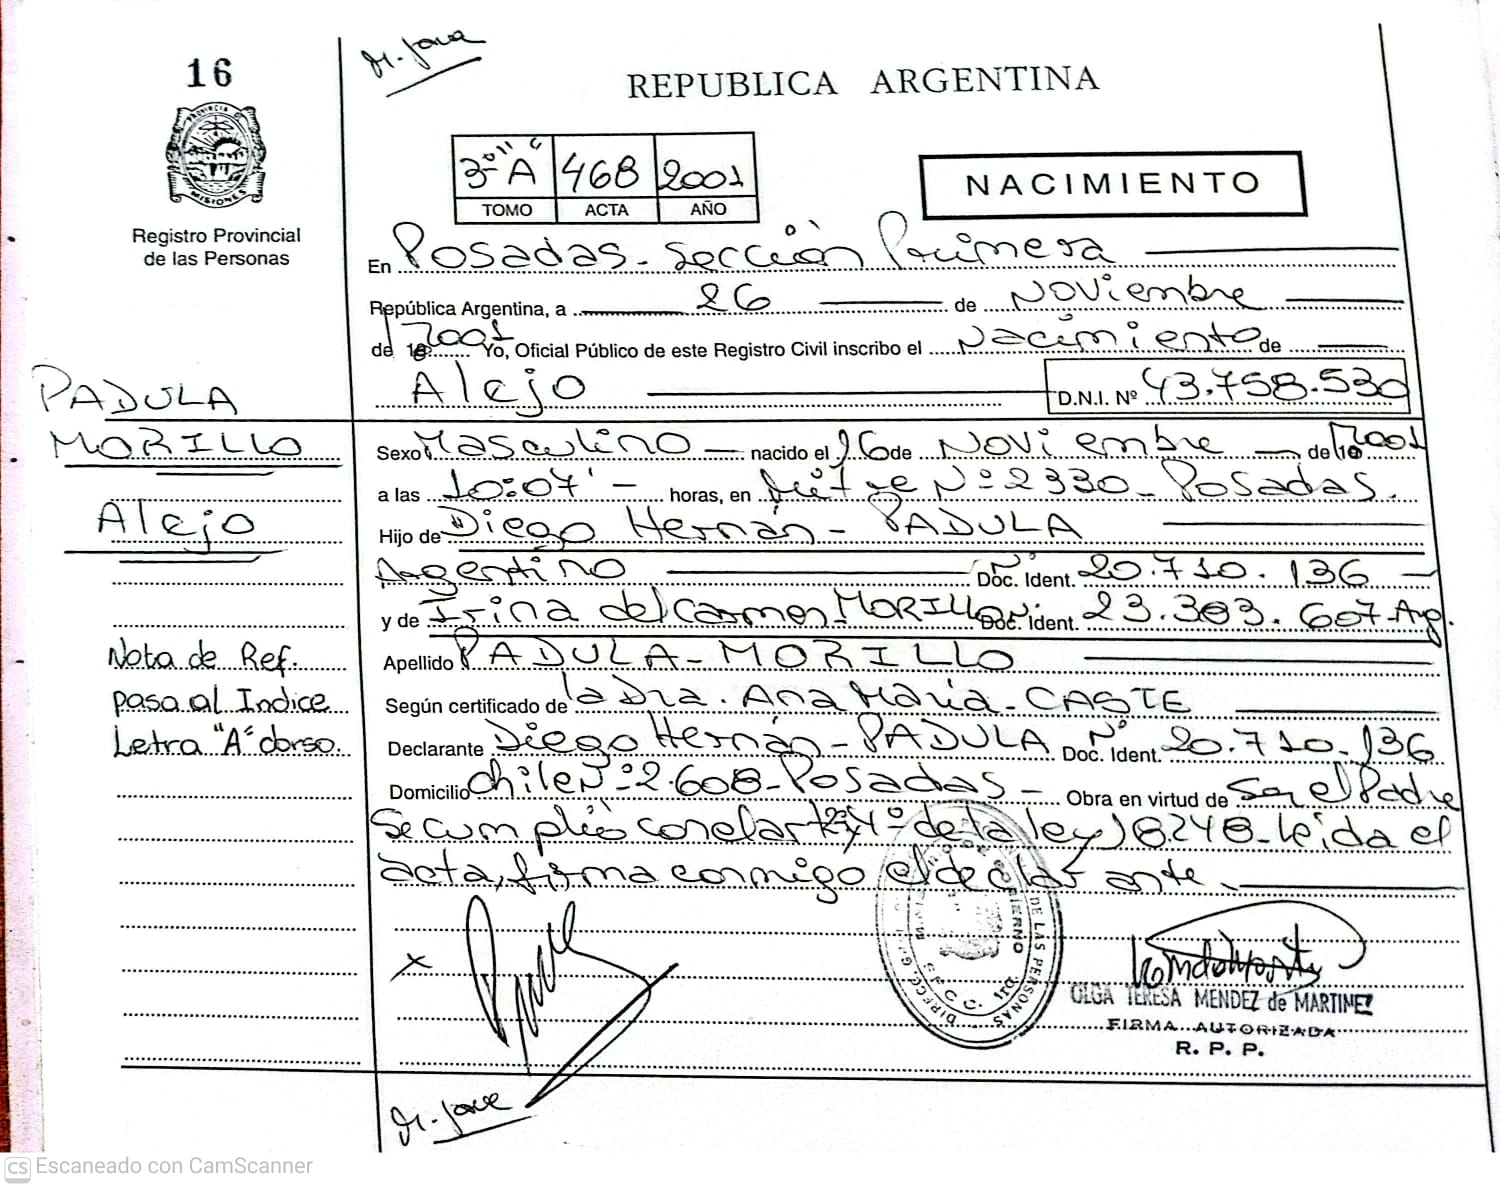 16
PROVINCIA DE
MISIONES
Registro Provincial
de las Personas
REPUBLICA ARGENTINA
3º "A" 468 2001
TOMO ACTA AÑO
NACIMIENTO
En Posadas - Sección Primera
República Argentina, a 26 de Noviembre
de 2001 Yo, Oficial Público de este Registro Civil inscribo el Nacimiento de
Alejo D.N.I. Nº 43.758.530
PADULA
MORILLO
Alejo
Sexo Masculino nacido el 16 de Noviembre de 2001
a las 10:07' - horas, en Mitre Nº 2330 - Posadas.
Hijo de Diego Hernán - PADULA
Argentino Nº Doc. Ident. 20.710.136
y de Irina del Carmen MORILLO Doc. Ident. 23.383.607 - Arg.
Apellido PADULA - MORILLO
Según certificado de la Dra. Ana María - CASTE
Declarante Diego Hernán - PADULA Nº Doc. Ident. 20.710.136
Domicilio Chile Nº 2.608 - Posadas - Obra en virtud de Ser el Padre
Se cumplió con el art. 4º de la ley 18.248 - Leída el
acta, firma conmigo el declarante.
Nota de Ref.
pasa al Indice
Letra "A" dorso.
OLGA TERESA MENDEZ de MARTINEZ
FIRMA AUTORIZADA
R. P. P.
CS Escaneado con CamScanner